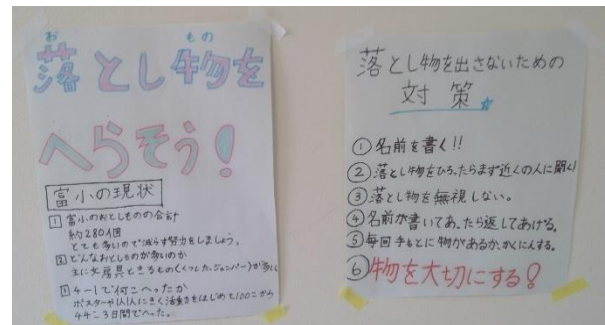 落とし物を
お
もの
へらそう！
富小の現状
1 富小のおとしものの合計
約280個
とても多いので減らす努力をしましょう。
2 どんなおとしものが多いのか
主に文房具ときるもの(くつした、ジャンパー)が多い
3 4-1で何こへったか
ポスターや1人1人にきく活動をはじめて100こから
44こ3日間でへった。
落とし物を出さないための
対策
①名前を書く!!
②落とし物をひろったらまず近くの人に聞く!
③落とし物を無視しない。
④名前が書いてあったら返してあげる。
⑤毎回手もとに物があるか、かくにんする。
⑥物を大切にする!